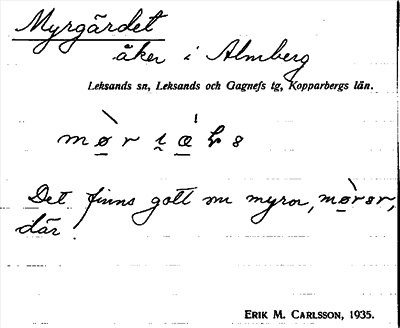 Myrgärdet
åker i Almberg
Leksands sn, Leksands och Gagnefs tg, Kopparbergs län.
Det finns gott om myror,
där.
ERIK M. CARLSSON, 1935.